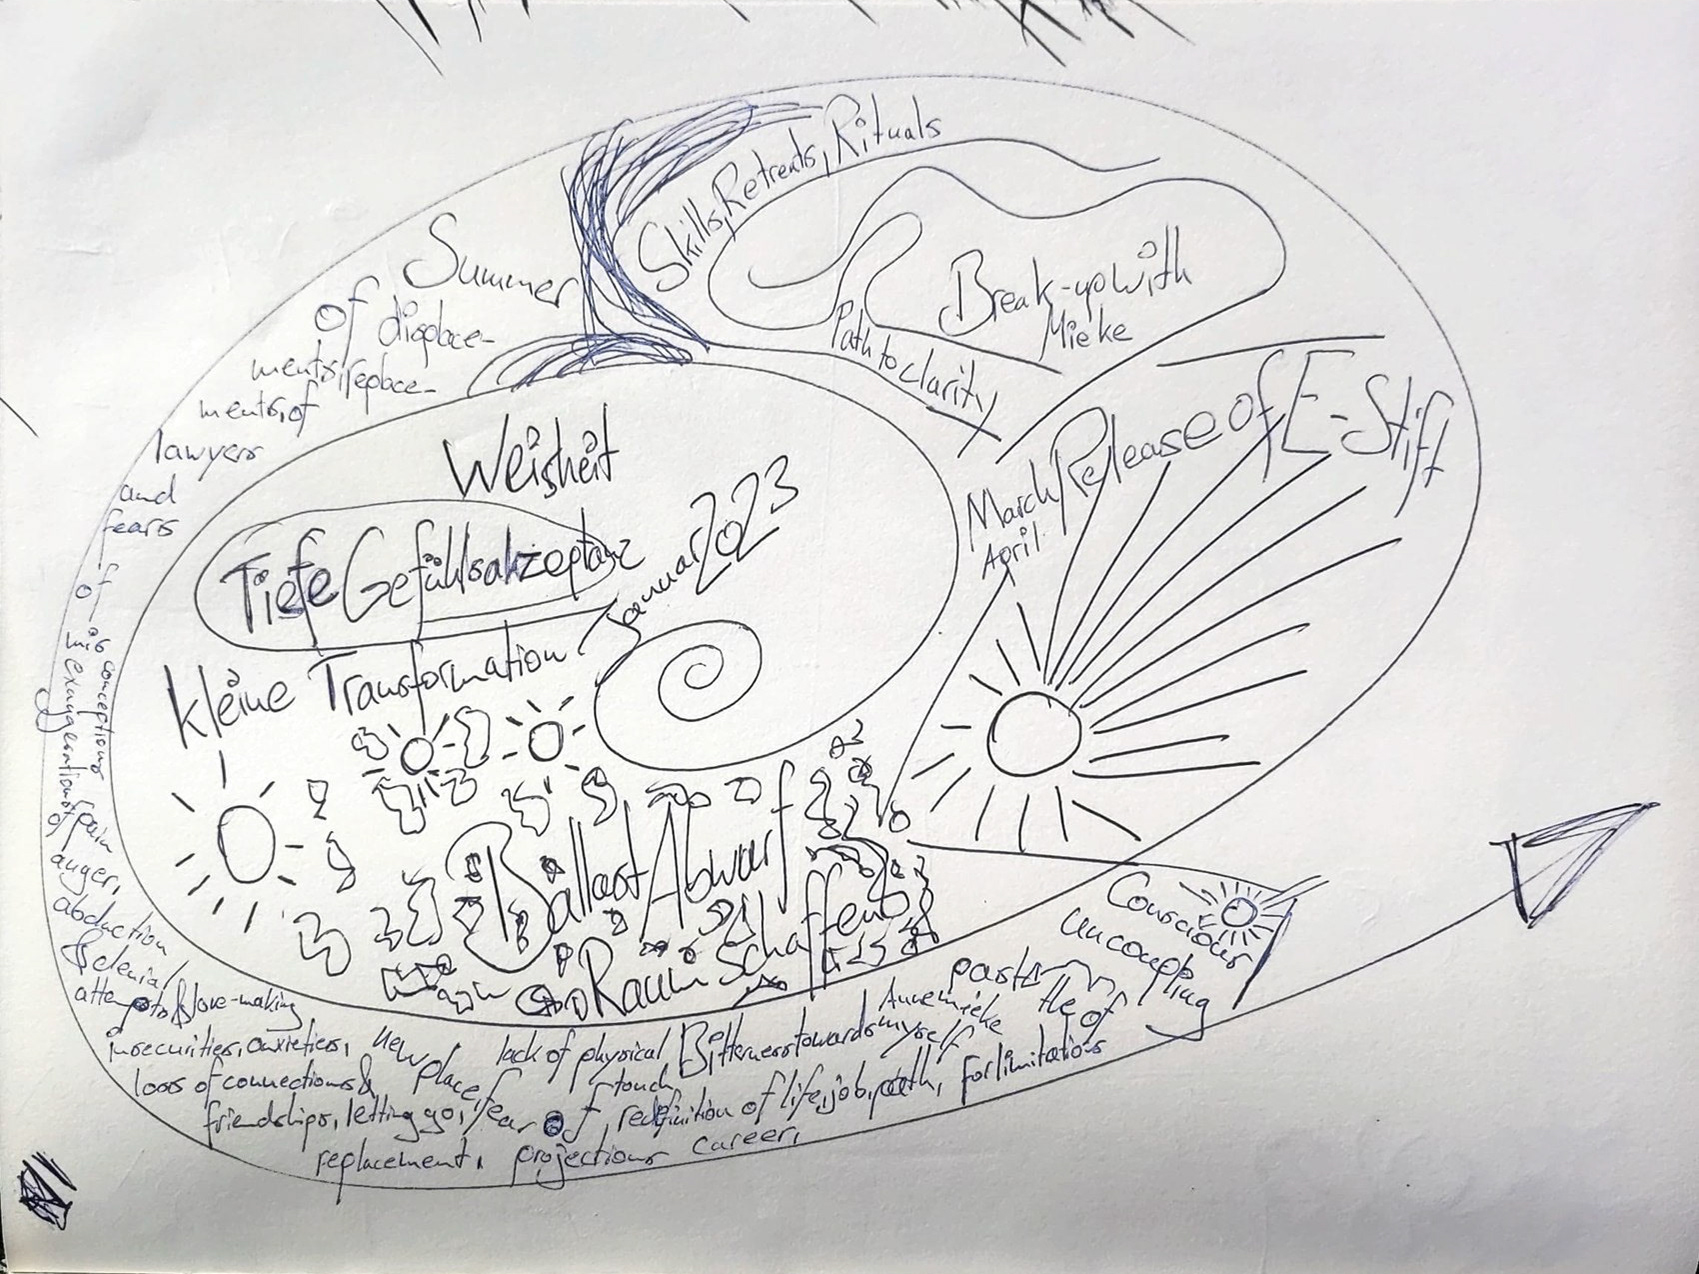 Weisheit
Tiefe Gefühlsakzeptanz
Kleine Transformation Januar 2023
Ballast Abwurf
Raum Schaffen
March/
April
Release of E-Stift
Break-up with
Mieke
Path to clarity
Skills, Retreats, Rituals
Summer
of displace-
ments, replace-
ments, of
lawyers
and
fears
of
misconceptions
in exaggeration of pain
of
anger,
abduction
& denial
attempts & love-making
insecurities, anxieties, new place,
loss of connections &
friendships, letting go, fear of
replacement, projections
lack of physical
touch,
redefinition of life, job, path,
career,
Bitterness towards myself
Annemieke
for limitations
past
of
Conscious
uncoupling